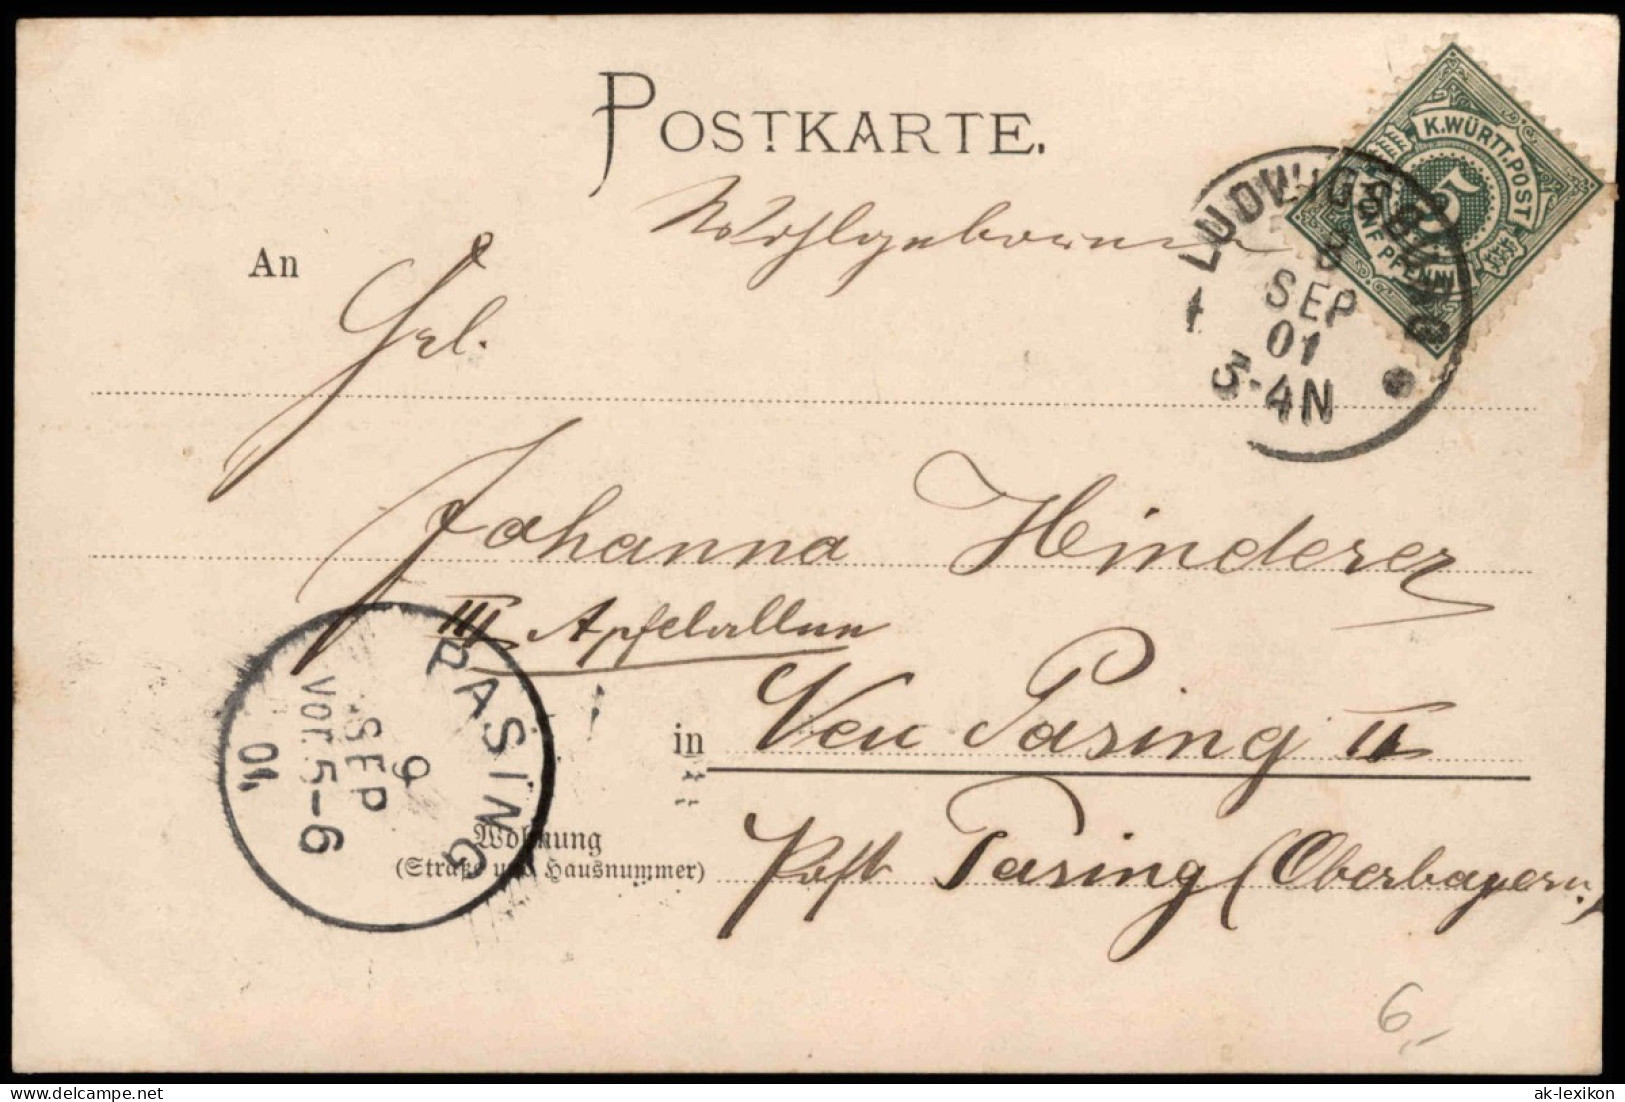 POSTKARTE.
K.WÜRTT.POST
5
FÜNF PFENNIG
LUDWIGSBURG
SEP
01
3-4N
Wohlgeboren
An
Frl.
Johanna Hinderer
III Apfelallee
PASING
9
SEP
VOR.5-6
01.
in Neu Pasing II
Wohnung
(Straße und Hausnummer)
Post Pasing (Oberbayern.)
6,-
ak-ansichtskarten.de
ak-lexikon